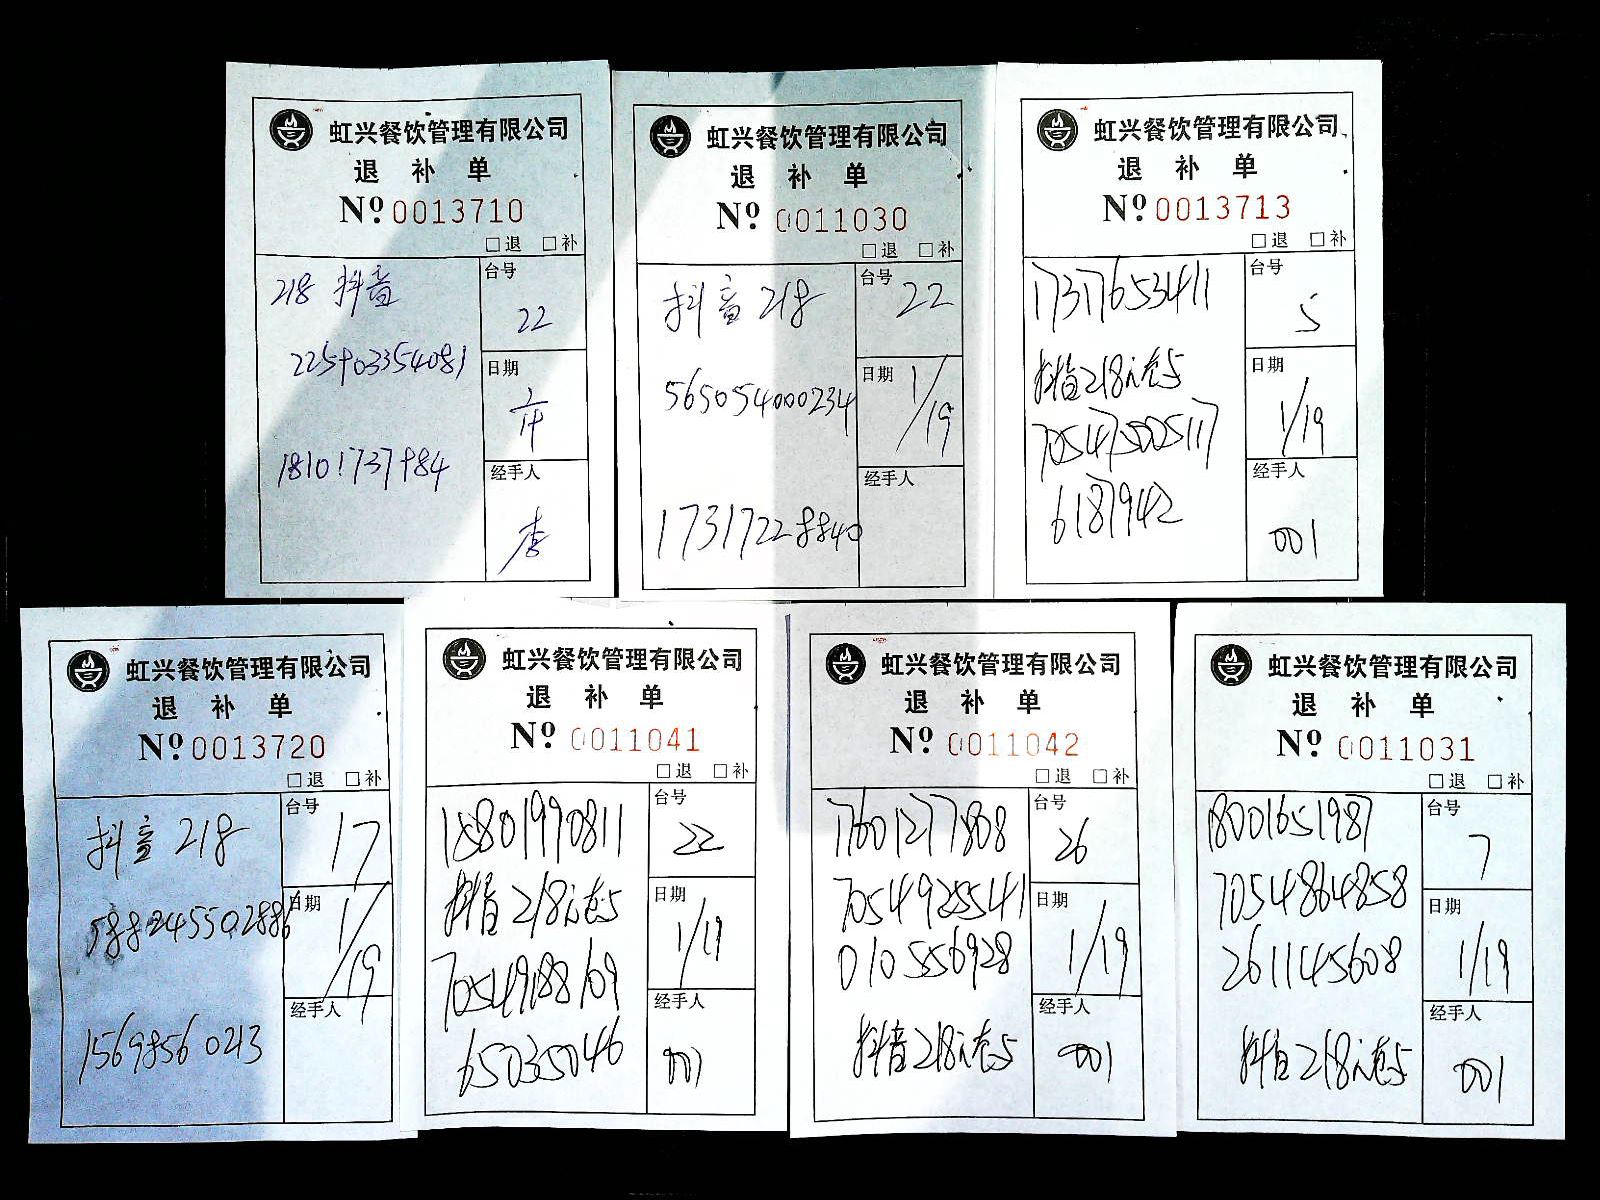 虹兴餐饮管理有限公司
退 补 单
Nº 0013710
□退 □补
218 抖音
台号
22
225903354081
日期
18101737984
经手人
李
虹兴餐饮管理有限公司
退 补 单
Nº 0011030
□退 □补
抖音 218
台号
22
565054000234
日期
1/19
17317228840
经手人
虹兴餐饮管理有限公司
退 补 单
Nº 0013713
□退 □补
17317653411
台号
5
抖音218元套5
日期
1/19
70547500517
6187942
经手人
001
虹兴餐饮管理有限公司
退 补 单
Nº 0013720
□退 □补
抖音 218
台号
17
588245502886
日期
1/19
15698560213
经手人
虹兴餐饮管理有限公司
退 补 单
Nº 0011041
□退 □补
15801990811
台号
22
抖音218元套5
日期
1/19
70549188109
65035046
经手人
001
虹兴餐饮管理有限公司
退 补 单
Nº 0011042
□退 □补
17601277808
台号
26
70549285541
日期
1/19
010556928
抖音218元套5
经手人
001
虹兴餐饮管理有限公司
退 补 单
Nº 0011031
□退 □补
18001651987
台号
7
70548864858
日期
1/19
2611145608
抖音218元套5
经手人
001